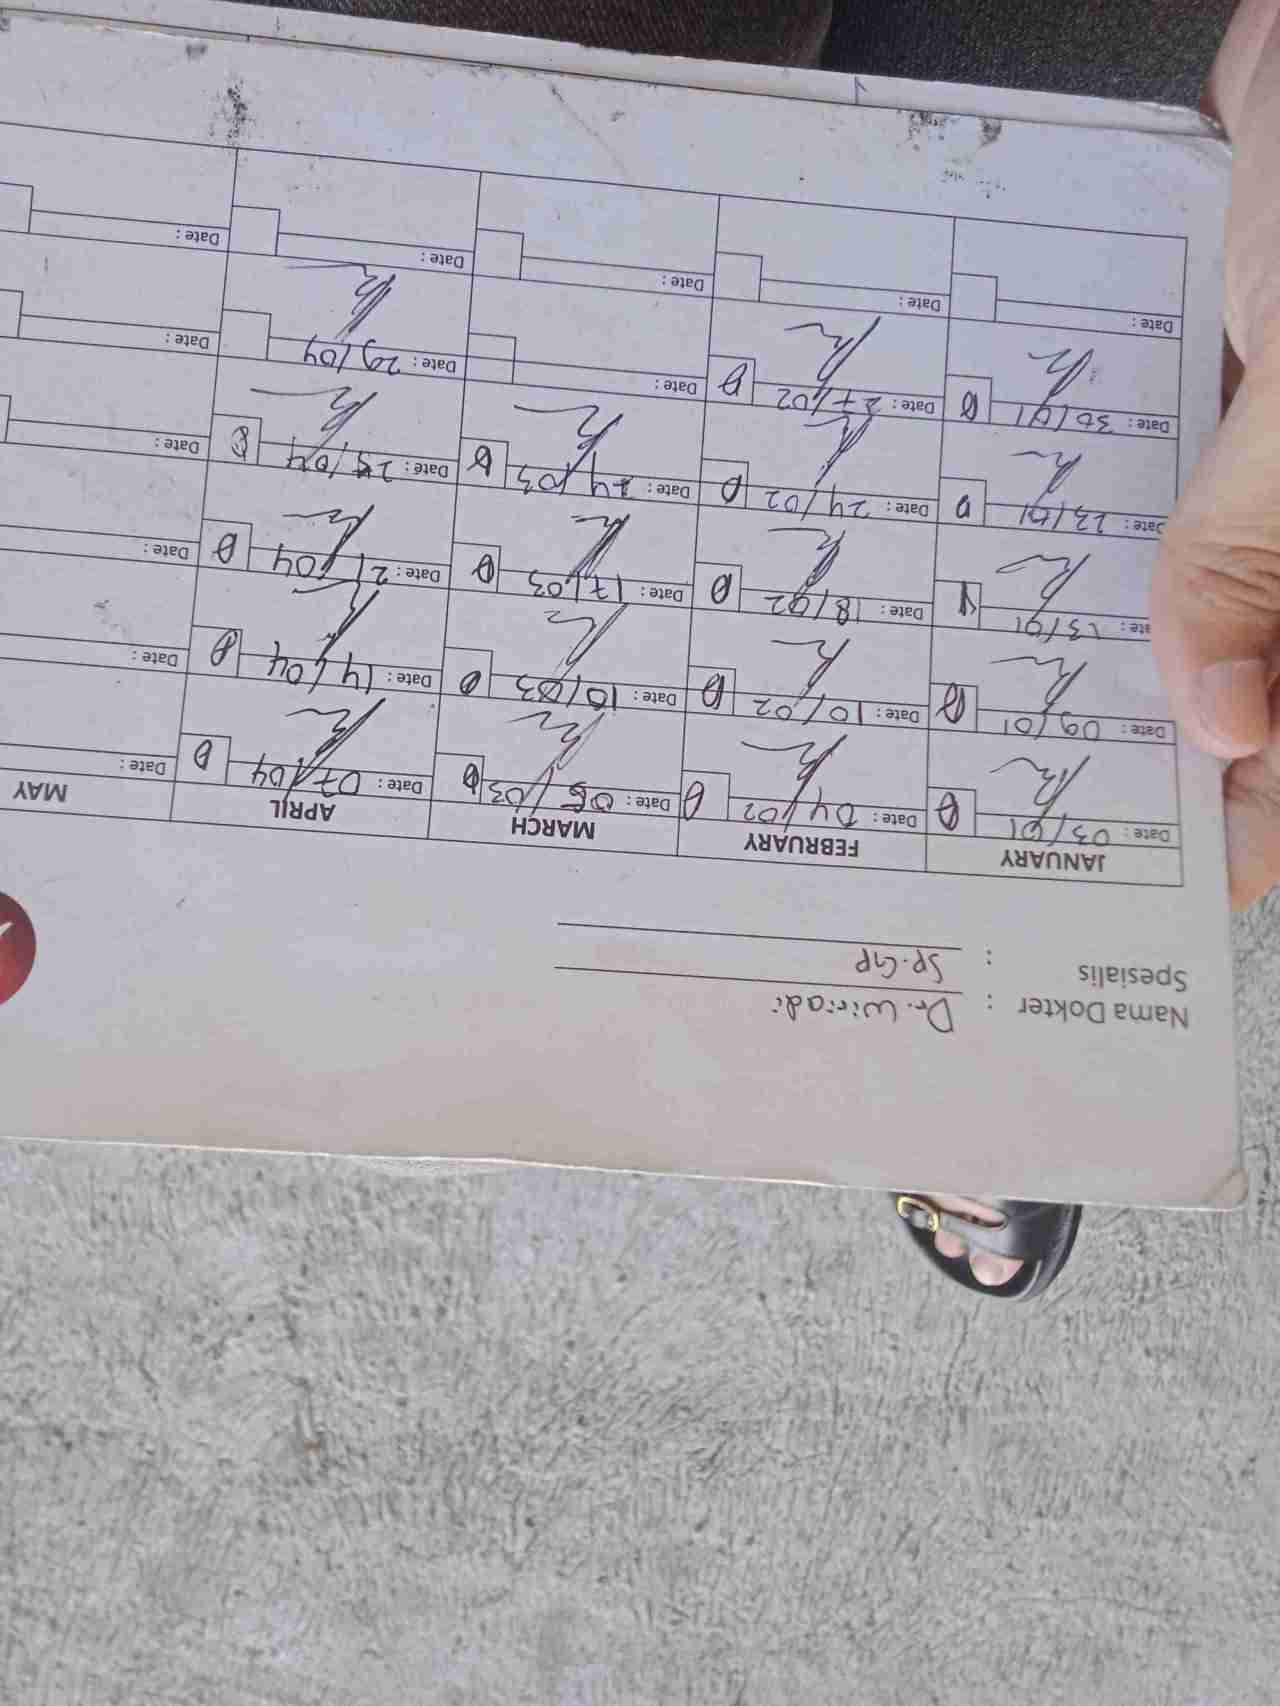 Nama Dokter : Dr. Wiriadi
Spesialis : Sp. GP
JANUARY FEBRUARY MARCH APRIL MAY
Date : 03/01 Date : 04/02 Date : 05/03 Date : 07/04 Date :
Date : 09/01 Date : 10/02 Date : 10/03 Date : 14/04 Date :
ate : 13/01 Date : 18/02 Date : 17/03 Date : 21/04 Date :
Date : 23/01 Date : 24/02 Date : 24/03 Date : 25/04 Date :
Date : 30/01 Date : 27/02 Date : Date : 29/04 Date :
Date : Date : Date : Date : Date :